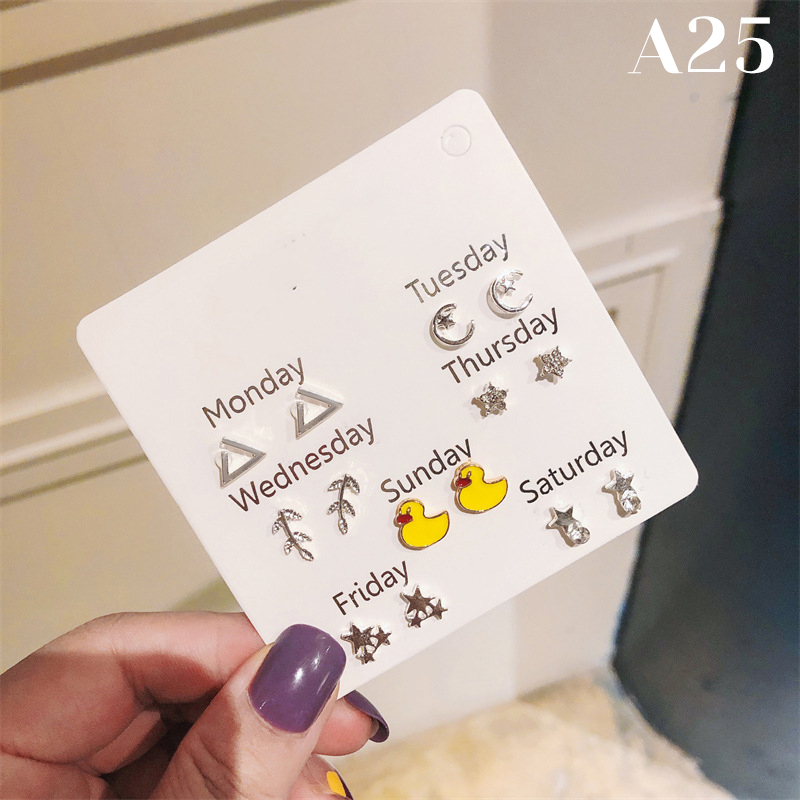 A25
Tuesday
Monday
Thursday
Wednesday
Sunday
Saturday
Friday